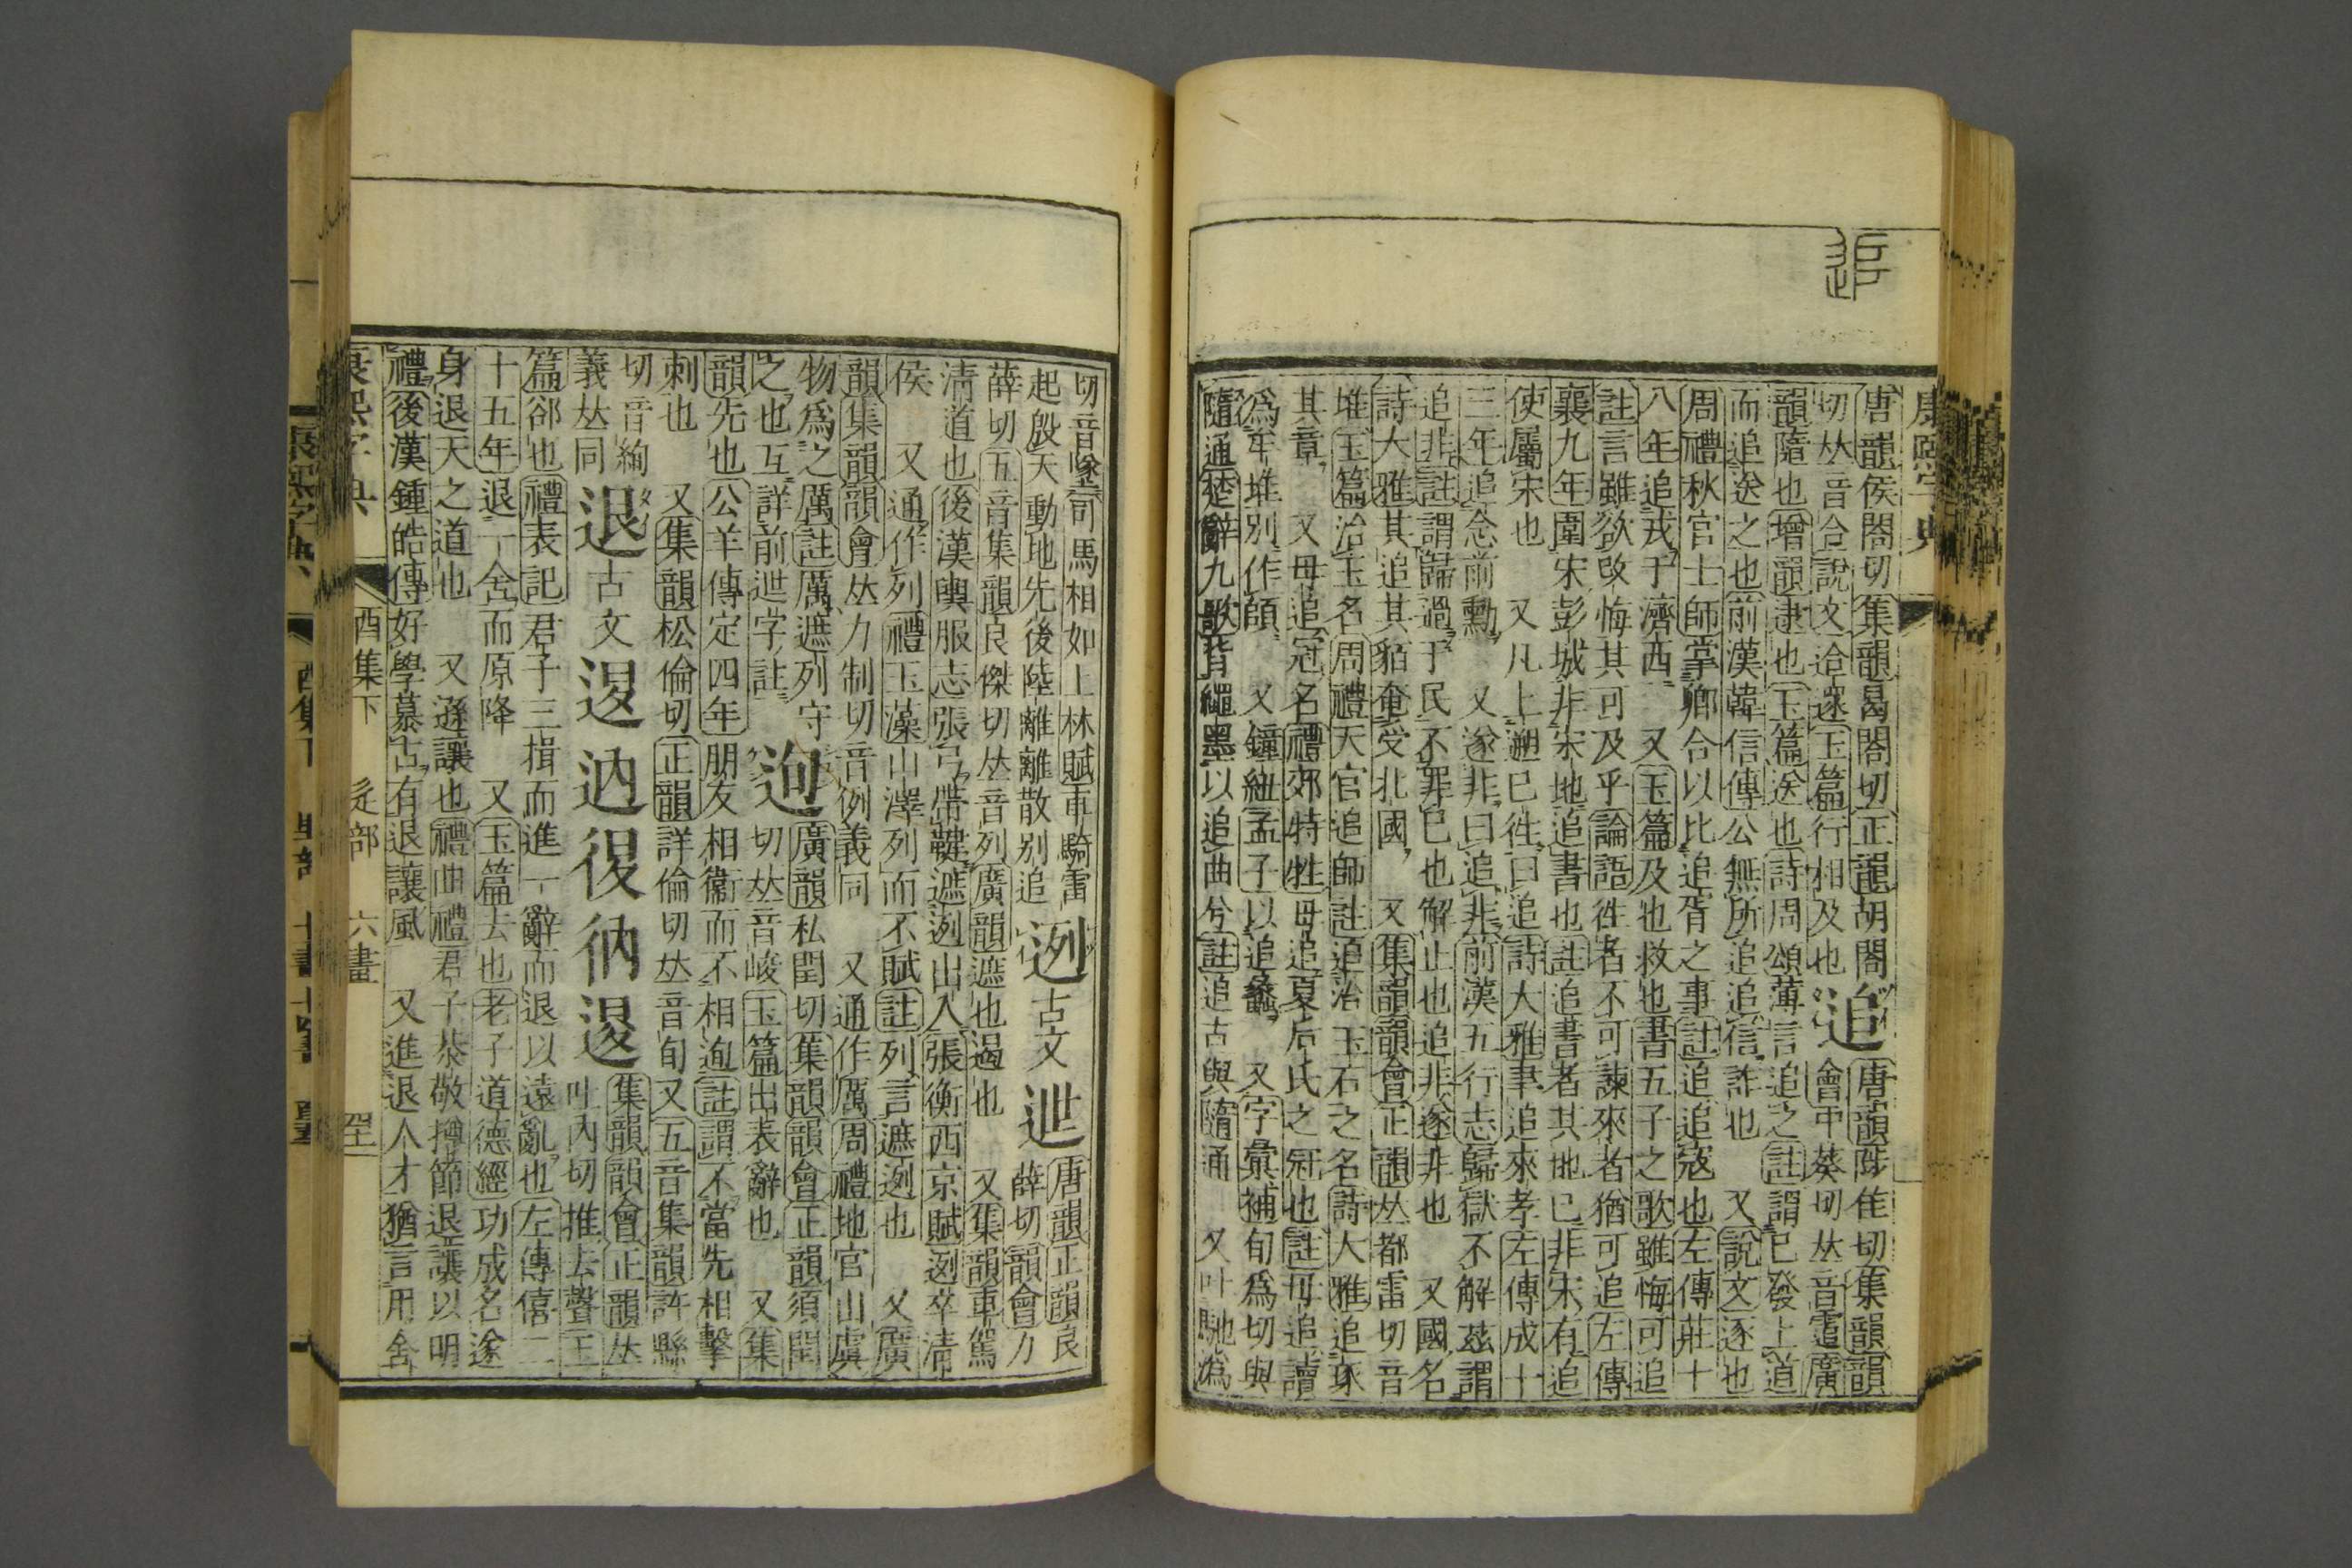 追
康熙字典
唐韻侯閤切集韻曷閤切正韻胡閤
切𠀤音合說文迨遝玉篇行相及也
追
唐韻陟隹切集韻韻
會中葵切𠀤音䨓廣
韻隨也增韻逮也玉篇送也詩周頌薄言追之註謂已發上道
而追送之也前漢韓信傳公無所追追信詐也 又說文逐也
周禮秋官士師掌鄉合以比追胥之事註追追寇也左傳莊十
八年追戎于濟西 又玉篇及也救也書五子之歌雖悔可追
註言雖欲改悔其可及乎論語徃者不可諫來者猶可追左傳
襄九年圍宋彭城非宋地追書也註追書者其地已非宋有追
使屬宋也 又凡上遡已徃曰追詩大雅聿追來孝左傳成十
三年追念前勳 又遂非曰追非前漢五行志歸獄不解茲謂
追非註謂歸過于民不罪已也解止也追非遂非也 又國名
詩大雅其追其貊奄受北國 又集韻韻會正韻𠀤都雷切音
堆玉篇治玉名周禮天官追師註追治玉石之名詩大雅追琢
其章 又毋追冠名禮郊特牲毋追夏后氏之冠也註毋追讀
爲牟堆別作頧 又鐘紐孟子以追蠡 又字彙補旬爲切與
隨通楚辭九歌背繩墨以追曲兮註追古與隨通 又叶馳潙
切音墬司馬相如上林賦車騎雷
起殷天動地先後陸離離散別追
迾
古文
迣
唐韻正韻良
薛切韻會力
薛切五音集韻良傑切𠀤音列廣韻遮也遏也 又集韻車駕
淸道也後漢輿服志張弓帶鞬遮迾出入張衡西京賦迾卒淸
侯 又通作列禮玉藻山澤列而不賦註列言遮迾也 又廣
韻集韻韻會𠀤力制切音例義同 又通作厲周禮地官山虞
物爲之厲註厲遮列守
之也互詳前迣字註
迿
廣韻私閏切集韻韻會正韻須閏
切𠀤音峻玉篇出表辭也 又集
韻先也公羊傳定四年朋友相衞而不相迿註謂不當先相擊
刺也 又集韻松倫切正韻詳倫切𠀤音旬又五音集韻許縣
切音絢
義𠀤同
退
古文
𨓤
𨒥
𢓴
𢓇
𨓤
集韻韻會正韻𠀤
吐內切推去聲玉
篇郤也禮表記君子三揖而進一辭而退以遠亂也左傳僖二
十五年退一舍而原降 又玉篇去也老子道德經功成名遂
身退天之道也 又遜讓也禮曲禮君子恭敬撙節退讓以明
禮後漢鍾皓傳好學慕古有退讓風 又進退人才猶言用舍
康熙字典 酉集下 辵部 六畫